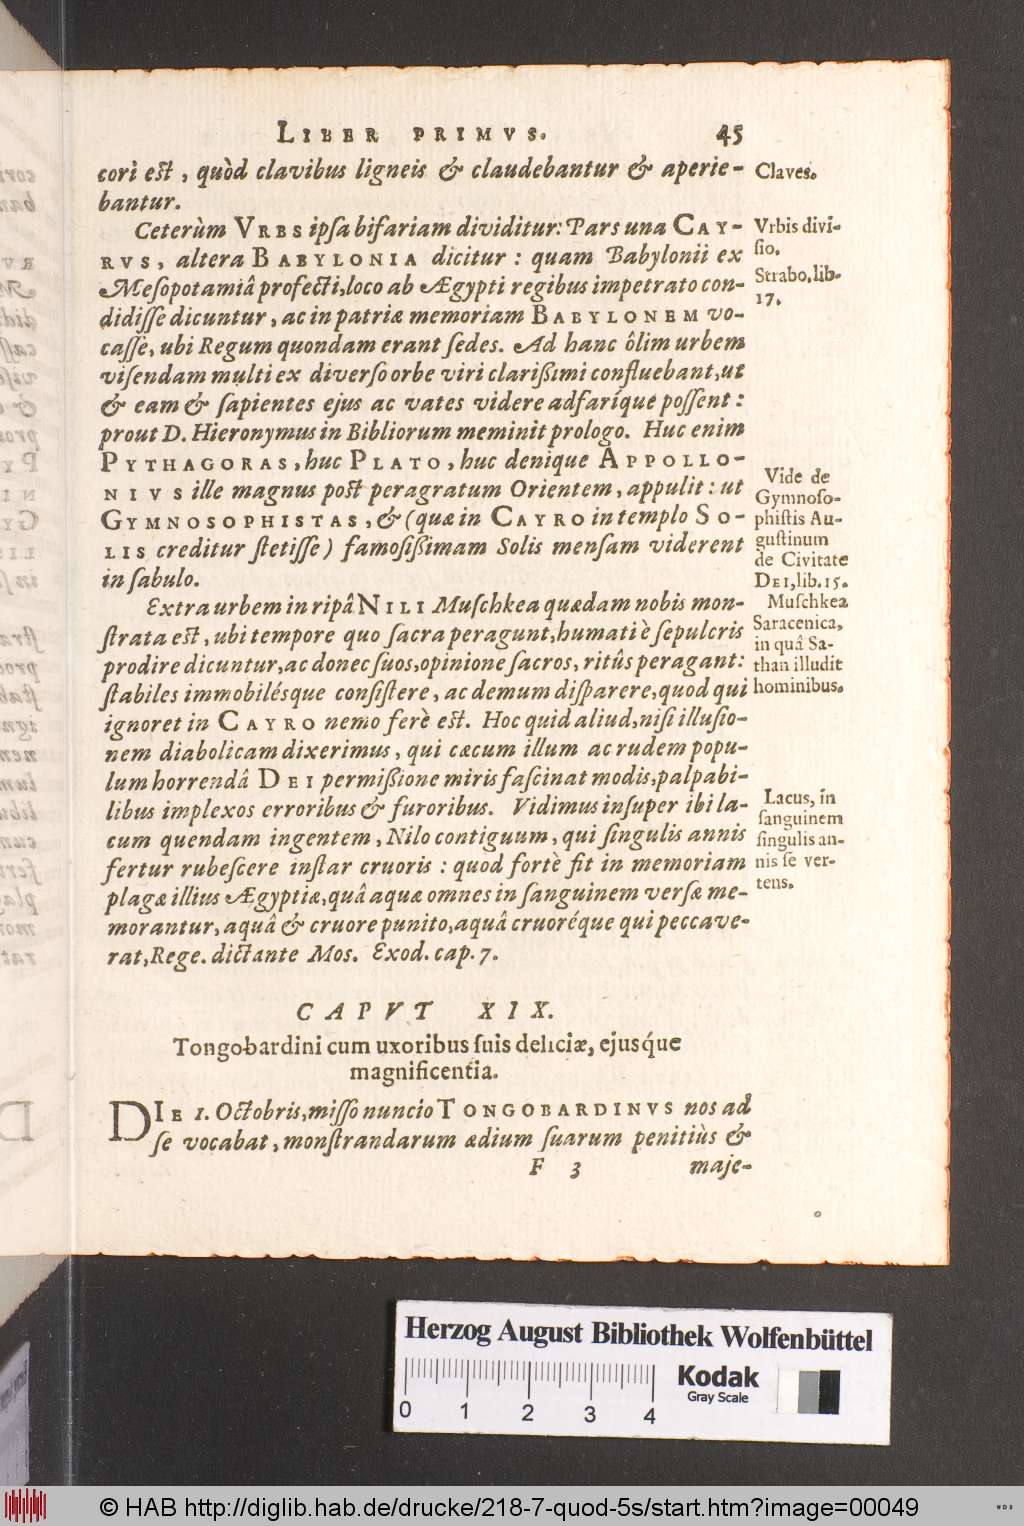 LIBER PRIMVS. 45
cori est, quòd clavibus ligneis & claudebantur & aperie-
bantur.
Claves.
Ceterùm VRBS ipsa bifariam dividitur: Pars una CAY-
RVS, altera BABYLONIA dicitur: quam Babylonii ex
Mesopotamiâ profecti, loco ab Ægypti regibus impetrato con-
didisse dicuntur, ac in patriæ memoriam BABYLONEM vo-
casse, ubi Regum quondam erant sedes. Ad hanc ôlim urbem
visendam multi ex diverso orbe viri clarißimi confluebant, ut
& eam & sapientes ejus ac vates videre adfaríque possent:
prout D. Hieronymus in Bibliorum meminit prologo. Huc enim
PYTHAGORAS, huc PLATO, huc denique APPOLLO-
NIVS ille magnus post peragratum Orientem, appulit: ut
GYMNOSOPHISTAS, & (quæ in CAYRO in templo SO-
LIS creditur stetisse) famosißimam Solis mensam viderent
in sabulo.
Vrbis divi-
sio.
Strabo, lib.
17.
Vide de
Gymnoso-
phistis Au-
gustinum
de Civitate
DEI, lib. 15.
Extra urbem in ripâ NILI Muschkea quædam nobis mon-
strata est, ubi tempore quo sacra peragunt, humati è sepulcris
prodire dicuntur, ac donec suos, opinione sacros, ritûs peragant:
stabiles immobilésque consistere, ac demum disparere, quod qui
ignoret in CAYRO nemo ferè est. Hoc quid aliud, nisi illusio-
nem diabolicam dixerimus, qui cæcum illum ac rudem popu-
lum horrendâ DEI permißione miris fascinat modis, palpabi-
libus implexos erroribus & furoribus. Vidimus insuper ibi la-
cum quendam ingentem, Nilo contiguum, qui singulis annis
fertur rubescere instar cruoris: quod fortè fit in memoriam
plagæ illius Ægyptiæ, quâ aquæ omnes in sanguinem versæ me-
morantur, aquâ & cruore punito, aquâ cruoréque qui peccave-
rat, Rege. dictante Mos. Exod. cap. 7.
Muschkea
Saracenica,
in quâ Sa-
than illudit
hominibus.
Lacus, in
sanguinem
singulis an-
nis se ver-
tens.
CAPVT XIX.
Tongobardini cum uxoribus suis deliciæ, ejusq́ue
magnificentia.
DIE 1. Octobris, misso nuncio TONGOBARDINVS nos ad
se vocabat, monstrandarum ædium suarum penitiùs &
F 3 maje-
Herzog August Bibliothek Wolfenbüttel
0 1 2 3 4
Kodak
Gray Scale
© HAB http://diglib.hab.de/drucke/218-7-quod-5s/start.htm?image=00049